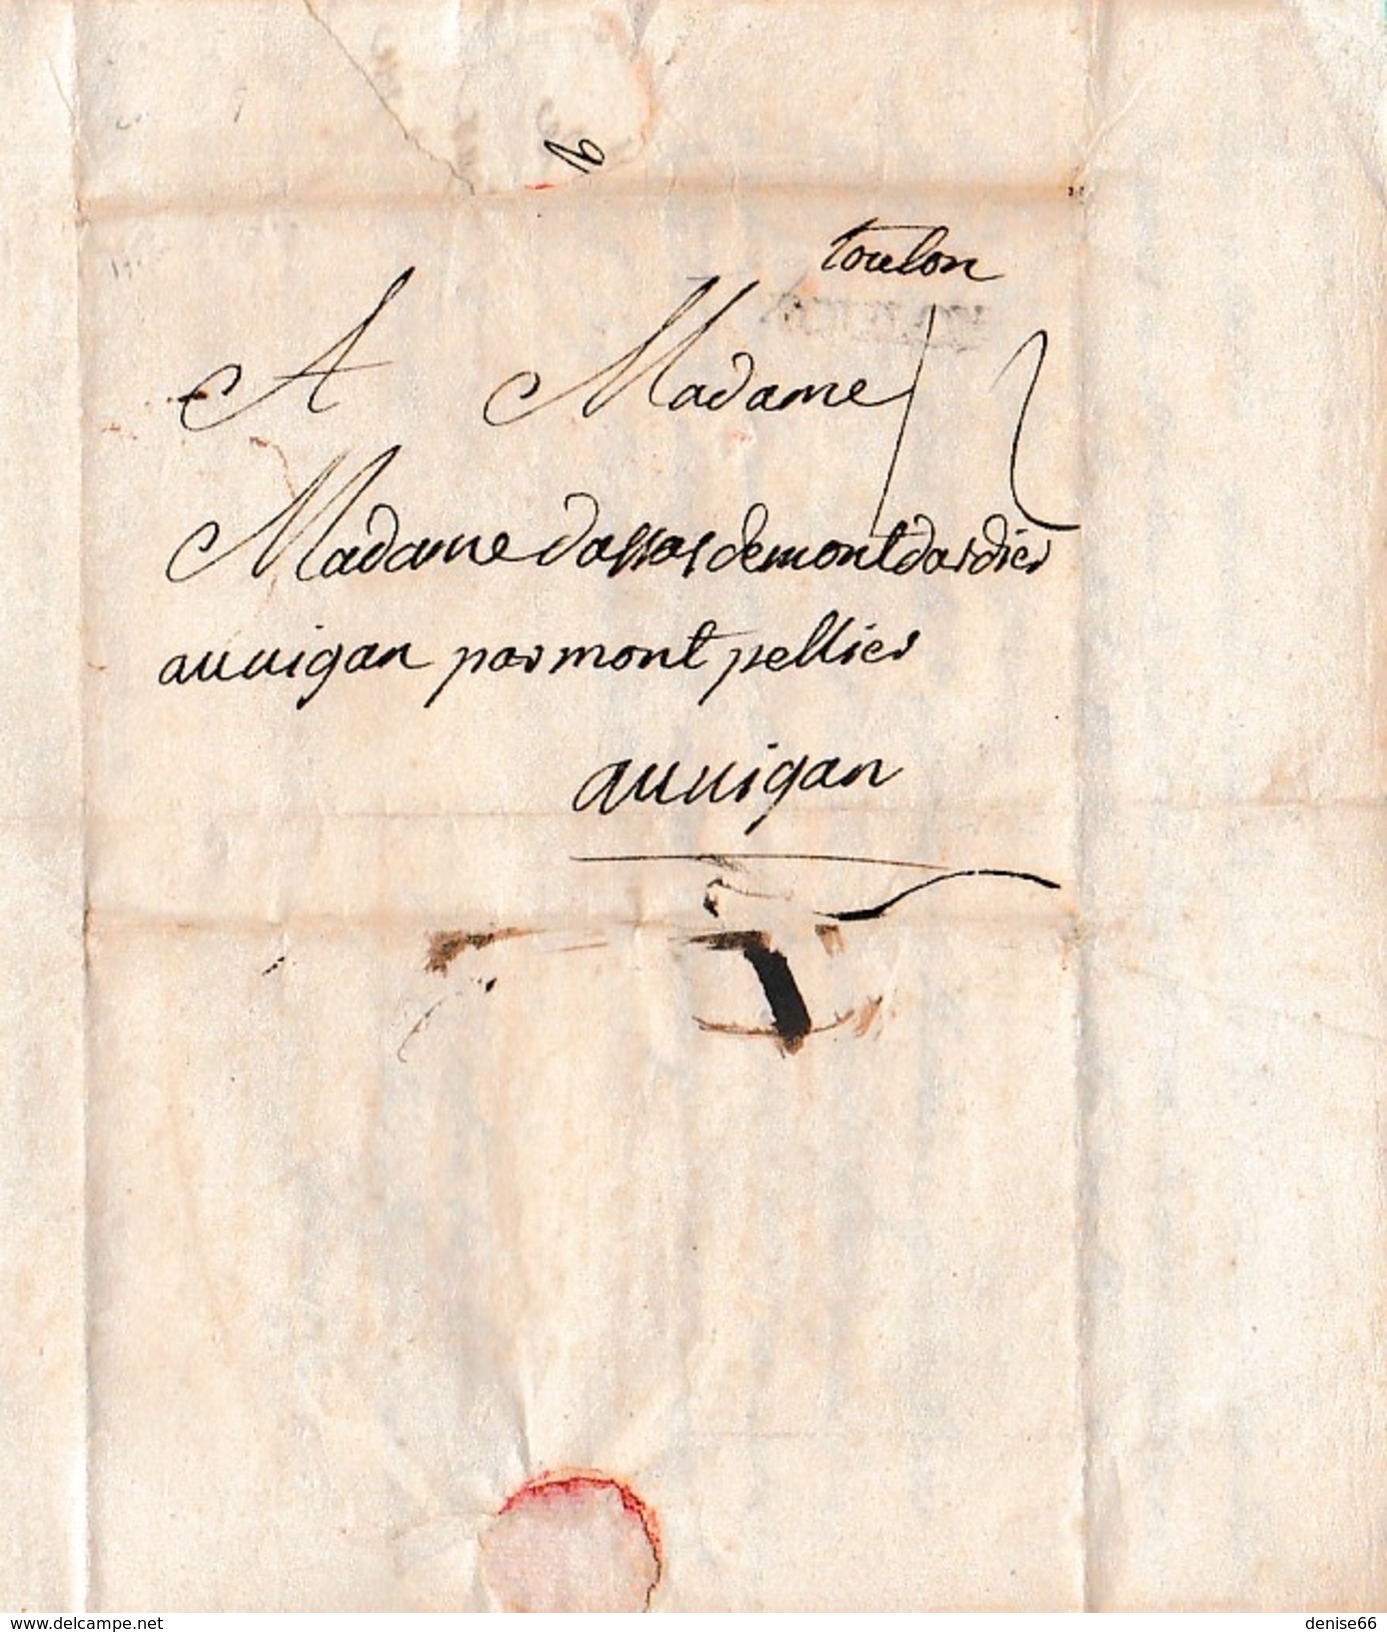 toulon
A Madame 12
Madame dassas demontdardier
auuigan par mont pellier
auuigan
www.delcampe.net
denise66